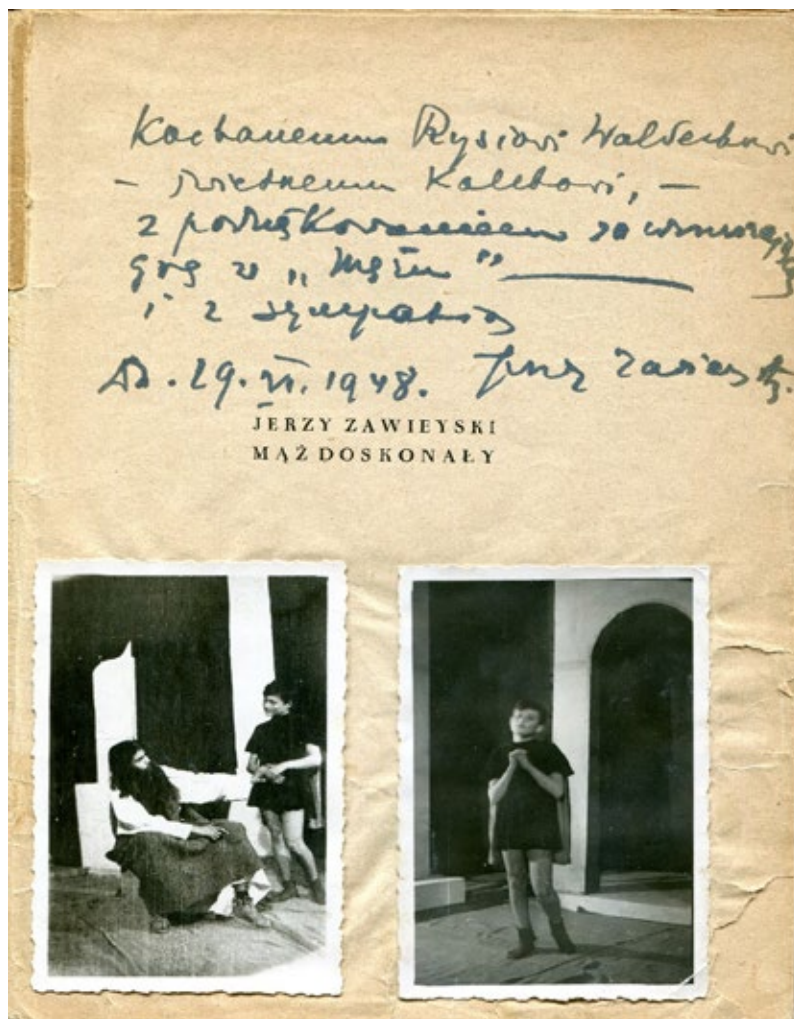 Kochanemu Rysiowi
– świetnemu Kalebowi, –
z podziękowaniem za wzruszającą
grę w „Mężu”
i z sympatią
29.VI.1948. Jerzy Zawieyski
JERZY ZAWIEYSKI
MĄŻ DOSKONAŁY